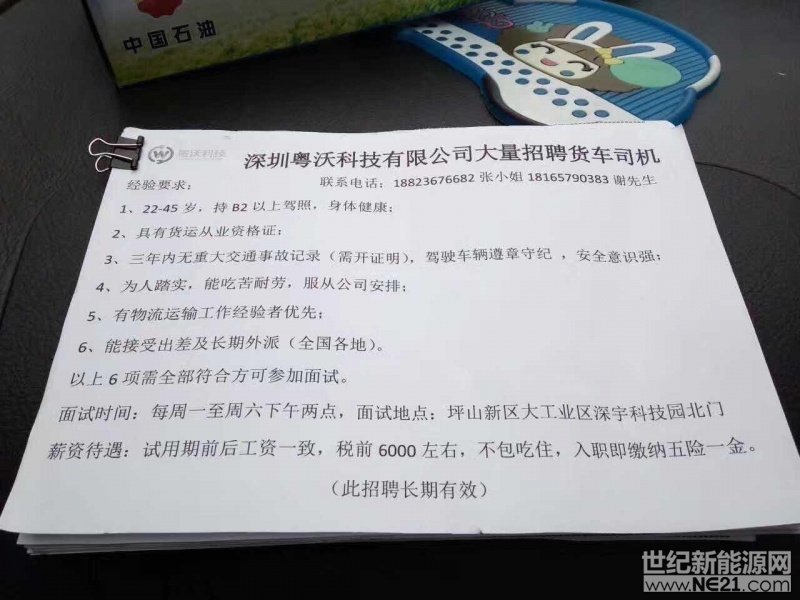 中国石油
粤沃科技
深圳粤沃科技有限公司大量招聘货车司机
经验要求：
联系电话：18823676682 张小姐 18165790383 谢先生
1、22-45 岁，持 B2 以上驾照，身体健康；
2、具有货运从业资格证；
3、三年内无重大交通事故记录（需开证明），驾驶车辆遵章守纪 ，安全意识强；
4、为人踏实，能吃苦耐劳，服从公司安排；
5、有物流运输工作经验者优先；
6、能接受出差及长期外派（全国各地）。
以上 6 项需全部符合方可参加面试。
面试时间：每周一至周六下午两点，面试地点：坪山新区大工业区深宇科技园北门
薪资待遇：试用期前后工资一致，税前 6000 左右，不包吃住，入职即缴纳五险一金。
（此招聘长期有效）
世纪新能源网
www.NE21.com